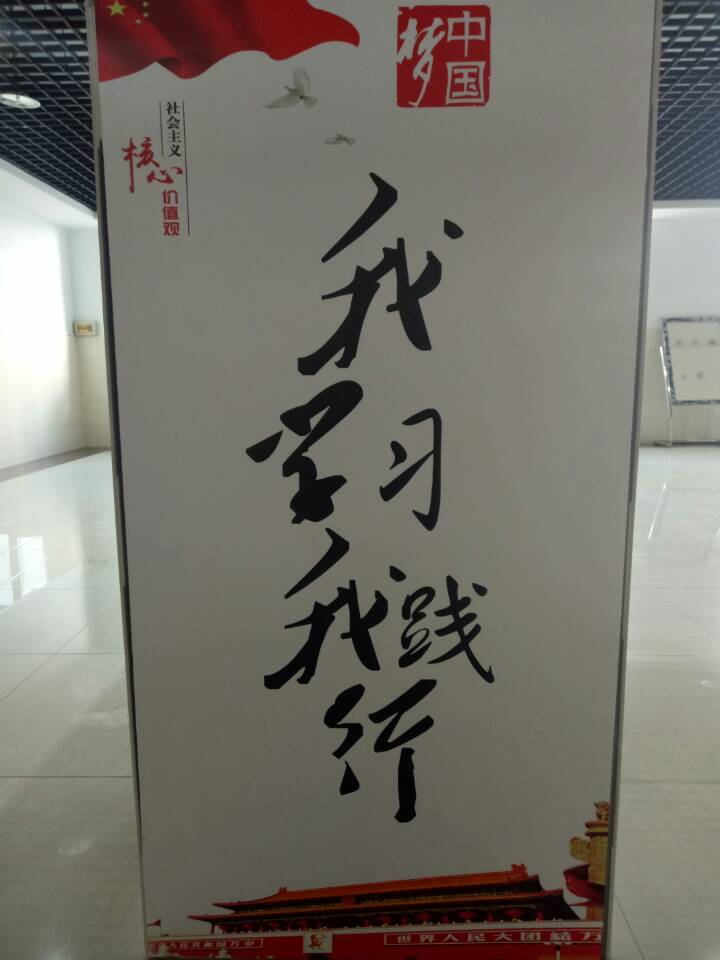 中国
梦
社会主义
核心
价值观
我
学习
我践
行
人民共和国万岁
世界人民大团结万